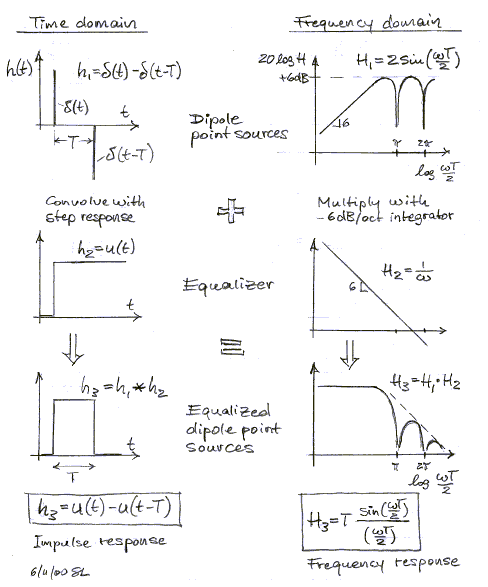 Time domain
Frequency domain
h(t)
h₁=δ(t)-δ(t-T)
δ(t)
t
T
δ(t-T)
Dipole
point sources
20 log H
+6dB
H₁=2sin(ωT/2)
6
π
2π
log ωT/2
Convolve with
step response
+
Multiply with
-6dB/oct integrator
h₂=u(t)
t
Equalizer
H₂=1/ω
6
⇓
≡
⇓
h₃=h₁*h₂
t
T
Equalized
dipole point
sources
H₃=H₁·H₂
π
2π
log ωT/2
h₃=u(t)-u(t-T)
Impulse response
H₃=T sin(ωT/2)/(ωT/2)
Frequency response
6/11/00 SL